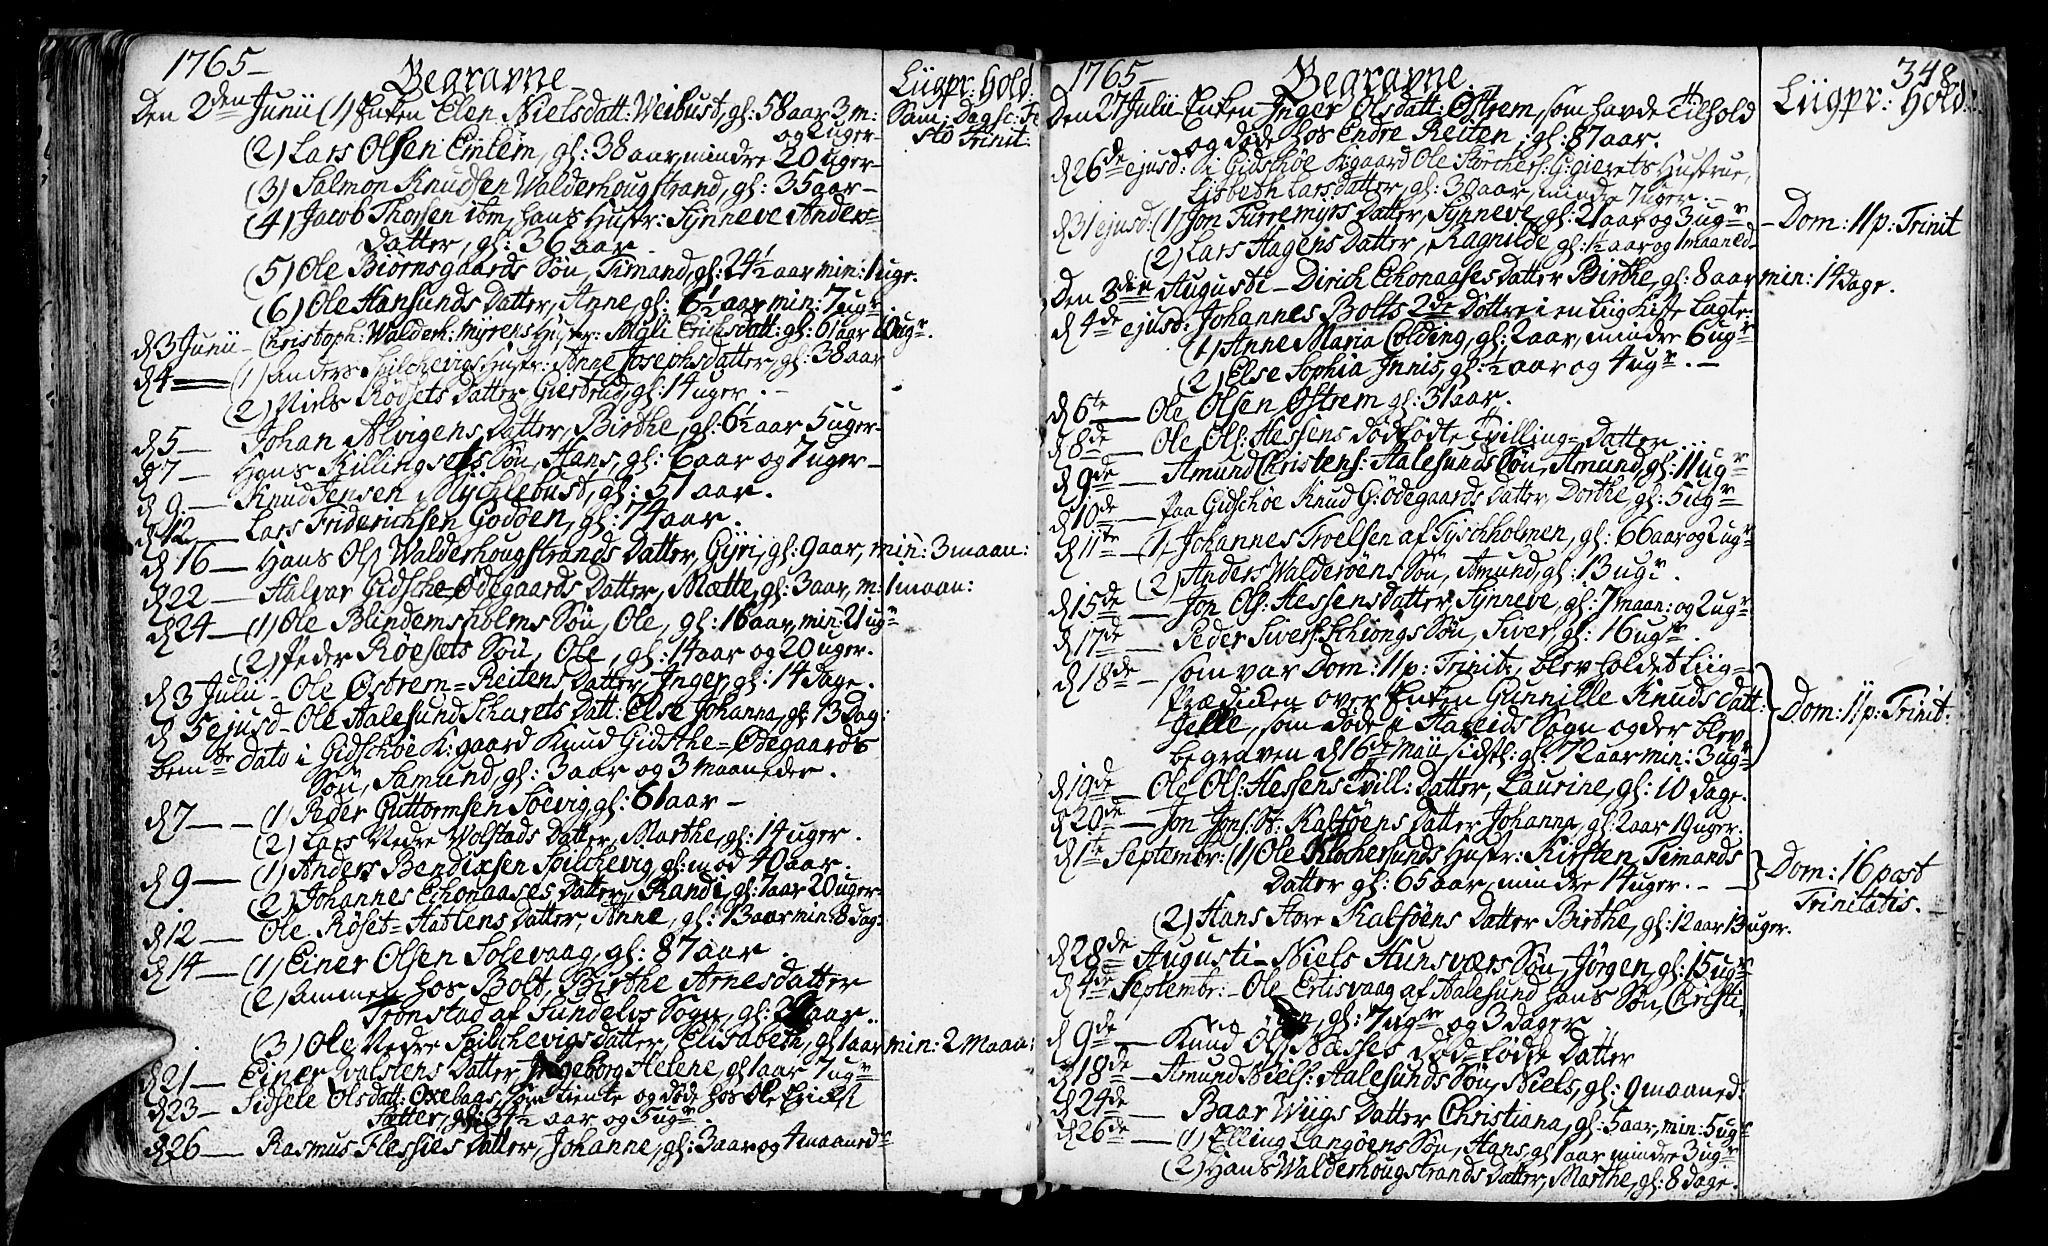 1765 —
Begravne
Liigpr: hold:
Den 2den Junii (1) Enken Elen Nielsdatt: Weibust, gl: 58 aar 3 m:
og 2 uger —
Sam: Dag sc: Fe
sto Trinit:
(2) Lars Olsen Emlem, gl: 38 aar, mindre 20 uger —
(3) Salmon Knudsen Walderhougstrand, gl: 35 aar —
(4) Jacob Thorsen ibm, hans Hustr: Synneve Anders=
Datter, gl: 36 aar —
(5) Ole Biørnsgaards Søn, Simand, gl: 24½ aar min: 1 uge.
(6) Ole Hansunds Datter, Anne, gl: 6½ aar min: 7 ugr
d 3 Junii — Christoph: Walderh: Myrens Hustr: Magli Erichsdatt: gl: 61 aar 10 ugr.
d 4 — (1) Anders Spilchevigs Hustr: Anne Josephsdatter, gl: 38 aar
(2) Niels Rødsets Datter, Giertrud, gl: 14 uger. —
d 5 — Johan Alvigens Datter, Birthe, gl: 6½ aar 5 uger —
d 7 — Hans Killingsets Søn, Hans, gl: 6 aar og 7 uger —
d 9. — Knud Jensen Mychlebust, gl: 51 aar.
d 12 — Lars Friderichsen Godøen, gl: 74 aar.
d 16 — Hans Ols Walderhougstrands Datter, Gyri, gl: 9 aar, min: 3 maan:
d 22 — Halvor Gidsche Ødegaards Datter, Mætte, gl: 3 aar, m: 1 maan:
d 24 — (1) Ole Blindemsholms Søn, Ole, gl: 16 aar, min: 21 ugr
(2) Peder Røesæts Søn, Ole, gl: 14 aar og 20 uger.
d 3 Julii — Ole Østrem = Reitens Datter, Inger, gl: 14 Dage.
d 5 ejusd — Ole Aalesund Scharets Datt: Else Johanna, gl: 13 Dag:
bemte Dato i Gidschøe K:gaard Knud Gidsche = Ødegaards
Søn, Samund, gl: 3 aar og 3 Maaneder.
d 7 — — (1) Peder Guttormsen Soevig, gl: 61 aar —
(2) Lars Nedre Wolstads Datter, Marthe, gl: 14 uger.
d 9 — (1) Anders Bendixsen Spilchevig, gl: mod 40 aar.
(2) Johannes Echonaases Datter, Randi, gl: 7 aar 20 uger
d 12 — Ole Røset = Hatlens Datter, Anne, gl: 13 aar min: 8 dag:
d 14 — (1) Einer Olsen Solevaag, gl: 87 aar
(2) Ammen hos Bolt, Birthe Arnesdatter
Tronstad af Sundelvs Sogn, gl: aar.
(3) Ole Nedre Spilchevigs datter, Elisabeth, gl 1 aar min: 2 Maan:
d 21 — Einer Valstens Datter, Ingeborg Helene, gl 1 aar 7 ugr
d 23 — Sidsele Olsdatt: Oxebags, som tiente og døde hos Ole Erichs
Sætter, gl: 34½ aar og 5 ugr.
d 26 — Rasmus Flessies Datter, Johanne, gl: 3 aar og 4 maaned:
1765 —
Begravne
Liigpr: hold:.
348.
Den 27 Julii Enken Inger Olsdatt: Østrem, som havde Tilhold
og døde hos Endre Reiten, gl: 87 aar.
d 26de ejusd: i Gidschøe K:gaard Ole Storchers: Giærets Hustrue,
Lisbeth Larsdatter, gl: 38 aar, mindre 7 uger. —
d 31 ejusd: (1) Jon Furremyrs Datter, Synneve, gl: 21 aar og 3 ugr — Dom: 11 p: Trinit
(2) Lars Hagens Datter, Ragnilde gl: 1½ aar og 1 maaned —
Den 3die Augusti — Dirich Echonaases Datter Birthe, gl: 8 aar min: 14 dage.
d 4de ejusd: Johannes Bolts 2de Døttre i en Liig Kiste lagte
(1) Anne Maria Colding, gl: 2 aar, mindre 6 ugr
(2) Else Sophia Innis, gl: ½ aar og 4 ugr. —
d 6te — Ole Olsen Østrem gl: 31 aar.
d 8de — Ole Ols: Hessens dødfødte Tvilling = Datter...
d 9de — Amund Christens: Aalesunds Søn, Amund, gl: 11 ugr
d 10de — Paa Gidschøe Knud G: Ødegaards Datter, Dorthe, gl: 5 ugr
d 11te — (1 — Johannes Troelsen af Tyschholmen, gl: 66 aar og 2 ugr
(2) Anders Walderøens Søn, Amund, gl: 13 ugr.
d 15de — Jon Ols: Hessens datter, Synneve, gl: 7 maan: og 2 ugr
d 17de — Peder Sivers: Schiongs Søn, Siver, gl: 16 ugr.
d 18de — som var Dom: 11 p: Trinit, blev holdet Liig=
Prædiken over Enken Gunnille Knudsdatt:
Gelle, som døde i Hareids Sogn og der blev
begraven d 16de Maii sidstl: gl: 72 aar min: 3 ugr
Dom: 11 p: Trinit.
d 19de — Ole Ols: Hessens Tvill: Datter, Laurine, gl: 10 dage.
d 20de — Jon Jons: St: Kalfsøens Datter Johanna, gl: 2 aar 19 uger:
d 1te Septembr: (1) Ole Klocherfunds Hustr: Kirsten Simands
Datter gl: 65 aar, mindre 14 uger. —
Dom: 16 post
Trinitatis.
(2) Hans Store Kalfsøens Datter Birthe, gl: 12 aar 13 uger.
d 28de Augusti — Niels Hunsværs Søn, Jørgen, gl: 15 ugr
d 4de Septembr: — Ole Ertisvaag af Aalesund hans Søn, Christi
an, gl: 7 ugr og 3 dager
d 9de — Knud Ols Næsses død = fødde Datter
d 18de — Amund Niels: Aalesunds Søn, Niels, gl: 9 maaned:
d 24de — Baar Wiigs Datter Christiana, gl: 5 aar, min: 5 ugr
d 26de — (1) Elling Langøens Søn, Hans, gl 1 aar mindre 3 ugr
(2) Hans Walderhougstrands Datter, Marthe, gl: 8 dage.